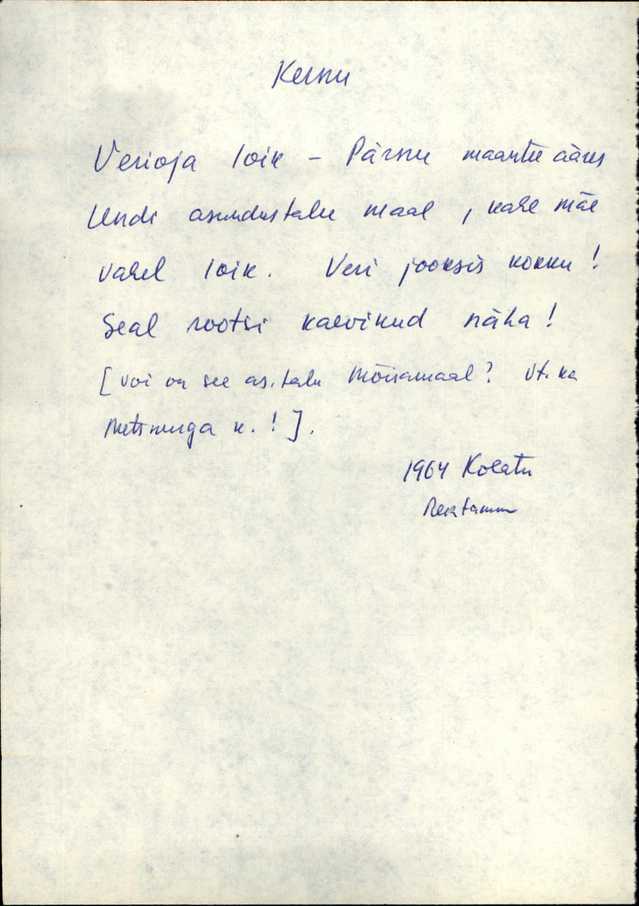 Kernu
Verioja loik – Pärnu maantee ääres
Undi asundustalu maal, kahe mäe
vahel loik. Veri jooksis kokku!
Seal rootsi kaevikud näha!
[Või on see as.talu Mõisamaal? Vt. ka
Metsnurga k.!].
1964 Kolatu